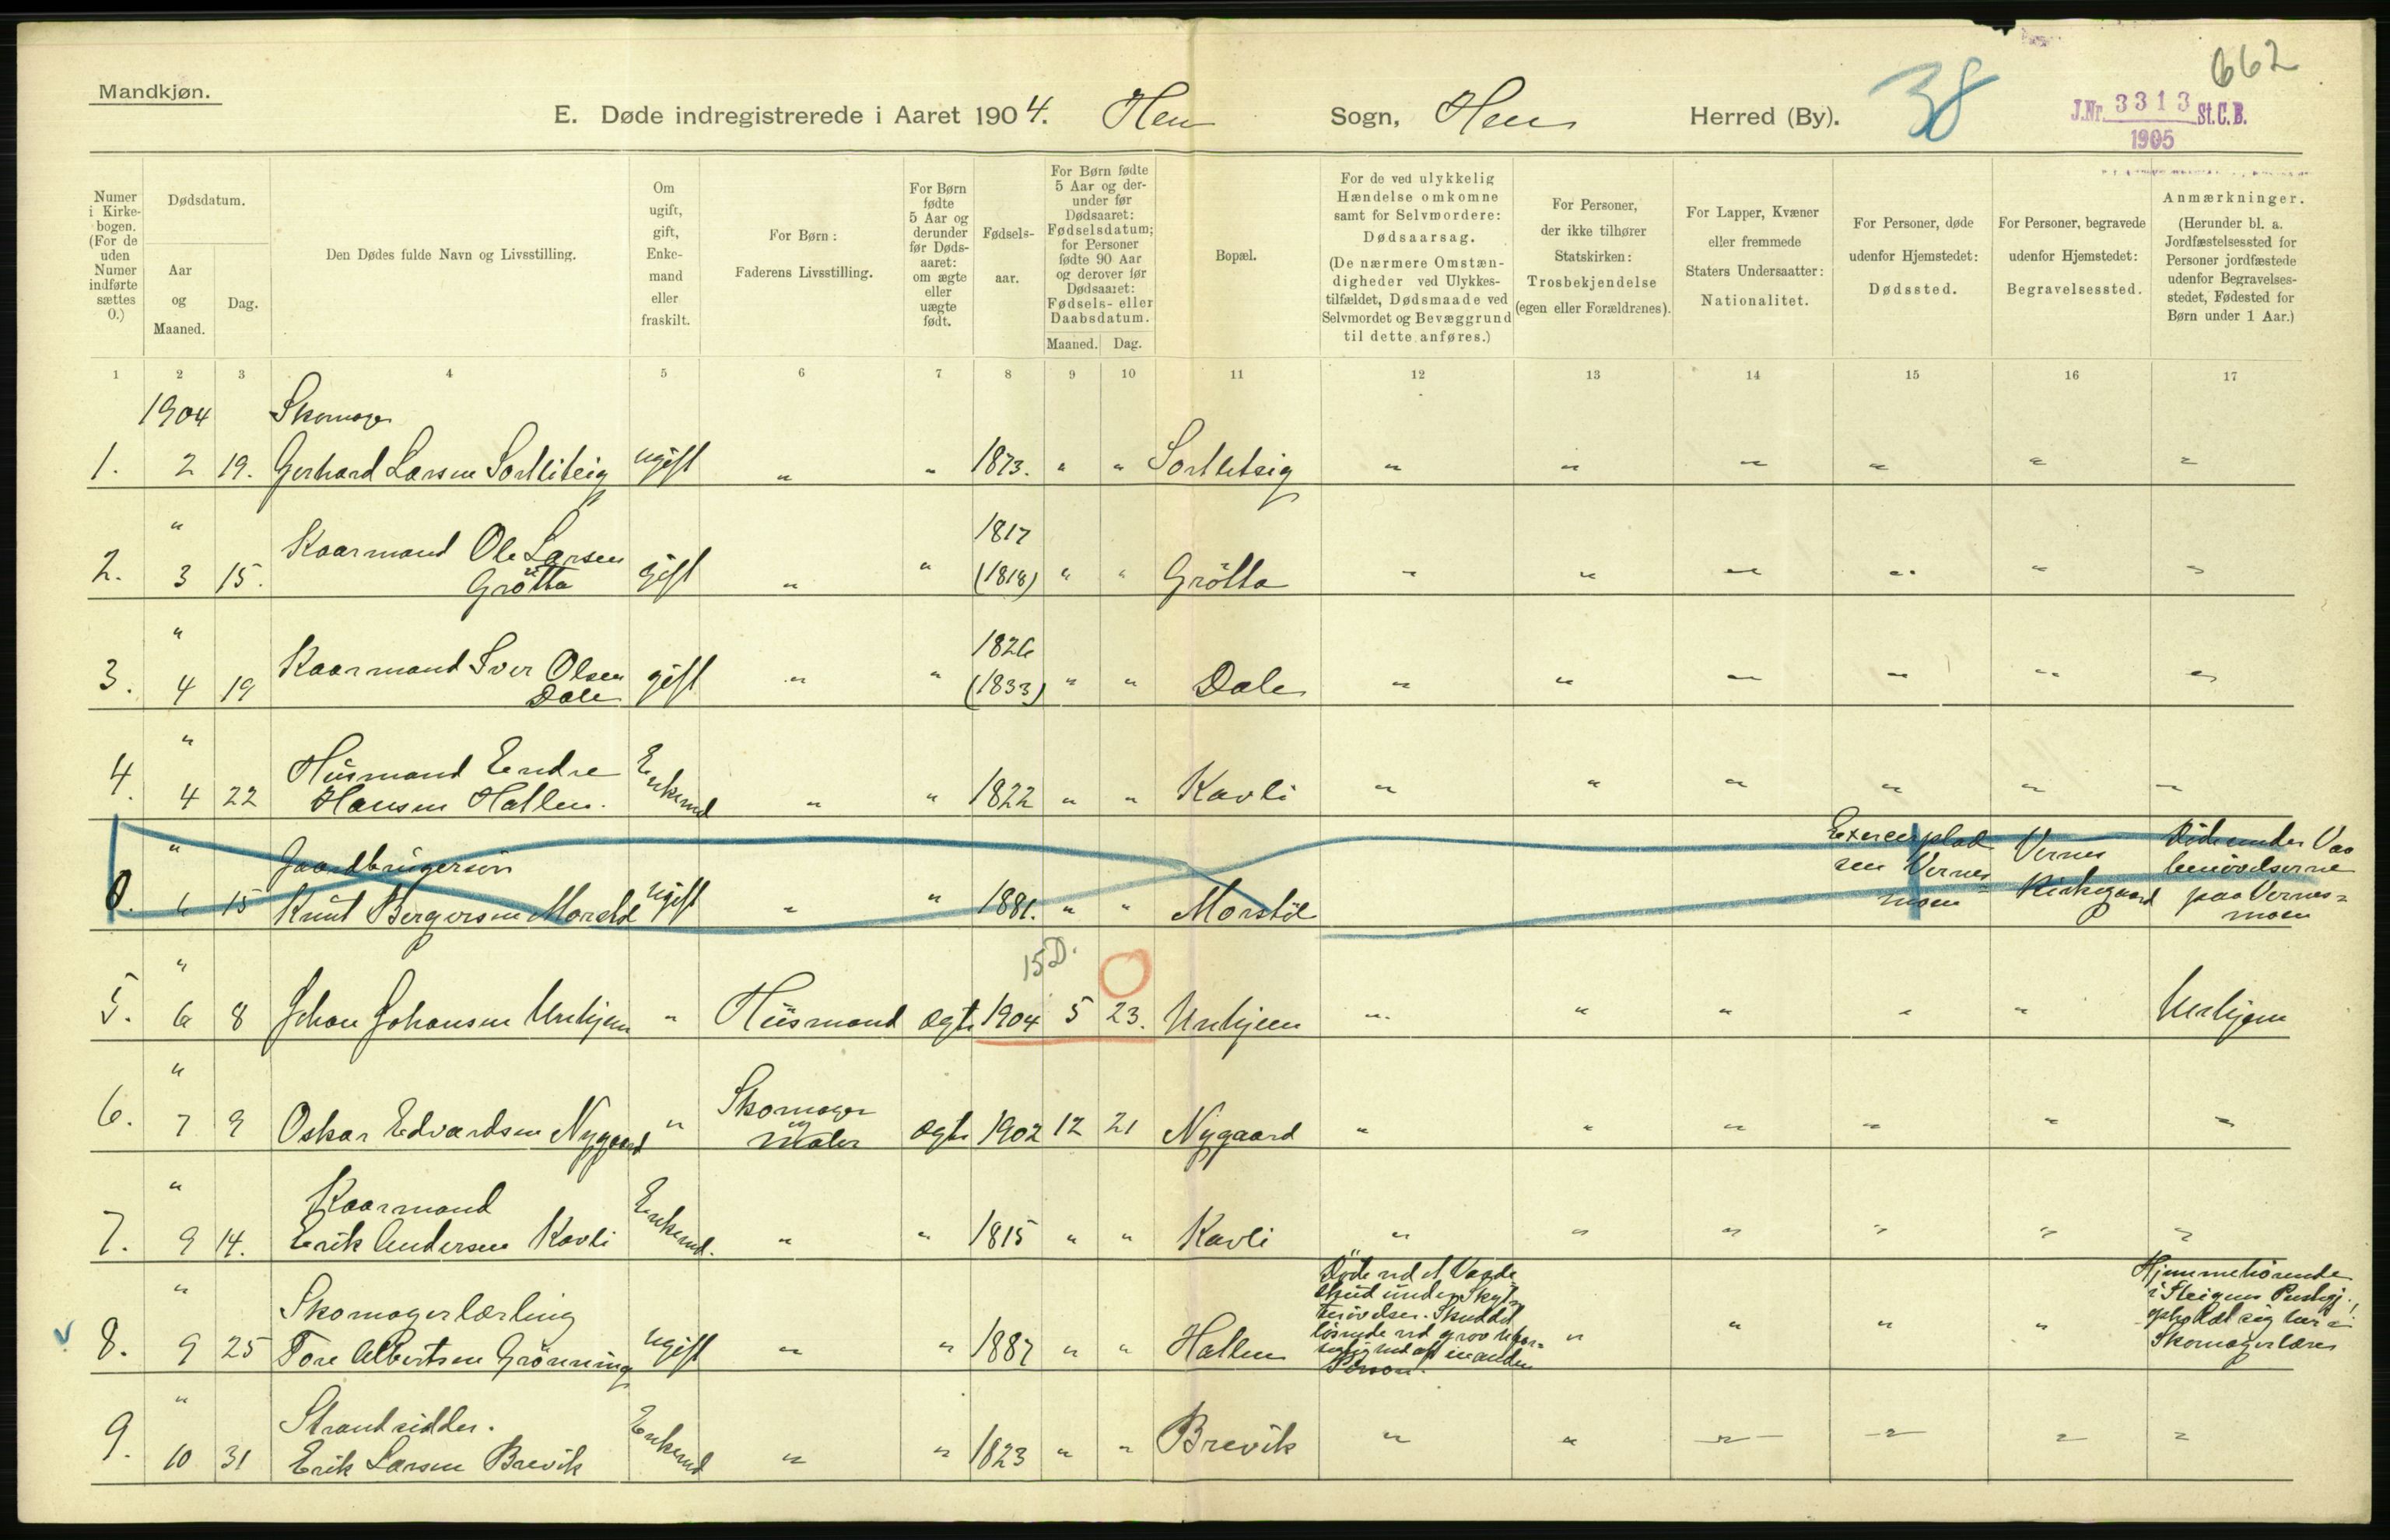 Mandkjøn.
662
E. Døde indregistrerede i Aaret 1904. Hen Sogn, Hen Herred (By).
38
J.Nr. 3313 St. C. B.
1905
Numer i Kirke-bogen. (For de uden Numer indførte sættes 0.)
Dødsdatum.
Aar og Maaned.
Dag.
Den Dødes fulde Navn og Livsstilling.
Om ugift, gift, Enke-mand eller fraskilt.
For Børn: Faderens Livsstilling.
For Børn fødte 5 Aar og derunder før Døds-aaret: om ægte eller uægte født.
Fødsels-aar.
For Børn fødte 5 Aar og der-under før Dødsaaret: Fødselsdatum; for Personer fødte 90 Aar og derover før Dødsaaret: Fødsels- eller Daabsdatum.
Maaned. Dag.
Bopæl.
For de ved ulykkelig Hændelse omkomne samt for Selvmordere: Dødsaarsag. (De nærmere Omstæn-digheder ved Ulykkes-tilfældet, Dødsmaade ved Selvmordet og Bevæggrund til dette anføres.)
For Personer, der ikke tilhører Statskirken: Trosbekjendelse (egen eller Forældrenes).
For Lapper, Kvæner eller fremmede Staters Undersaatter: Nationalitet.
For Personer, døde udenfor Hjemstedet: Dødssted.
For Personer, begravede udenfor Hjemstedet: Begravelsessted.
Anmærkninger. (Herunder bl. a. Jordfæstelsessted for Personer jordfæstede udenfor Begravelses-stedet, Fødested for Børn under 1 Aar.)
1 2 3 4 5 6 7 8 9 10 11 12 13 14 15 16 17
1904 Skomager
1. 2 19. Gerhard Larsen Sortliteig ugift " " 1873. " " " " " " " "
" Kaarmand Ole Larsen 1817
2. 3 15. Grötta gift " " (1818) " " Grötta " " " " " "
" Kaarmand Iver Olsen 1826
3. 4 19 Dale gift " " (1833) " " Dale " " " " " "
" Husmand Endre
4. 4 22 Hansen Hallen. Enkemd " " 1822 " " Kavli " " " " " "
" Gaardbrugersøn Exercerplad Vernes Döde under Vaa
0. 6 15 Knut Bergersen ugift " " 1881. " " Morstöl sen Vernes- Kirkegaard benövelserne
moen paa Vernes-
moen
15 D.
"
5. 6 8 Johan Johansen Unhjem " Husmand ægte 1904 5 23. Unhjem " " " " " Unhjem
" Skomager
6. 7 9 Oskar Edvardsen Nygaard " og Maler ægte 1902 12 21 Nygaard " " " " " "
" Kaarmand
7. 9 14. Erik Andersen Kavli Enkemd. " " 1815 " " Kavli " " " " " "
" Skomagerlærling Döde ved et Vaade- Hjemmehörende
skud under Skyt- i Steigen Prestegj.
terövelser. Skuddet opholdt sig her i
8. 9 25 Tore Albertsen Grönning ugift " " 1887 " " Hallen lösnede ved grov ufor- " " " " Skomagerlære
af en anden
Person.
" Strandsidder.
9. 10 31 Erik Larsen Brevik Enkemd " " 1823 " " Brevik " " " " " "